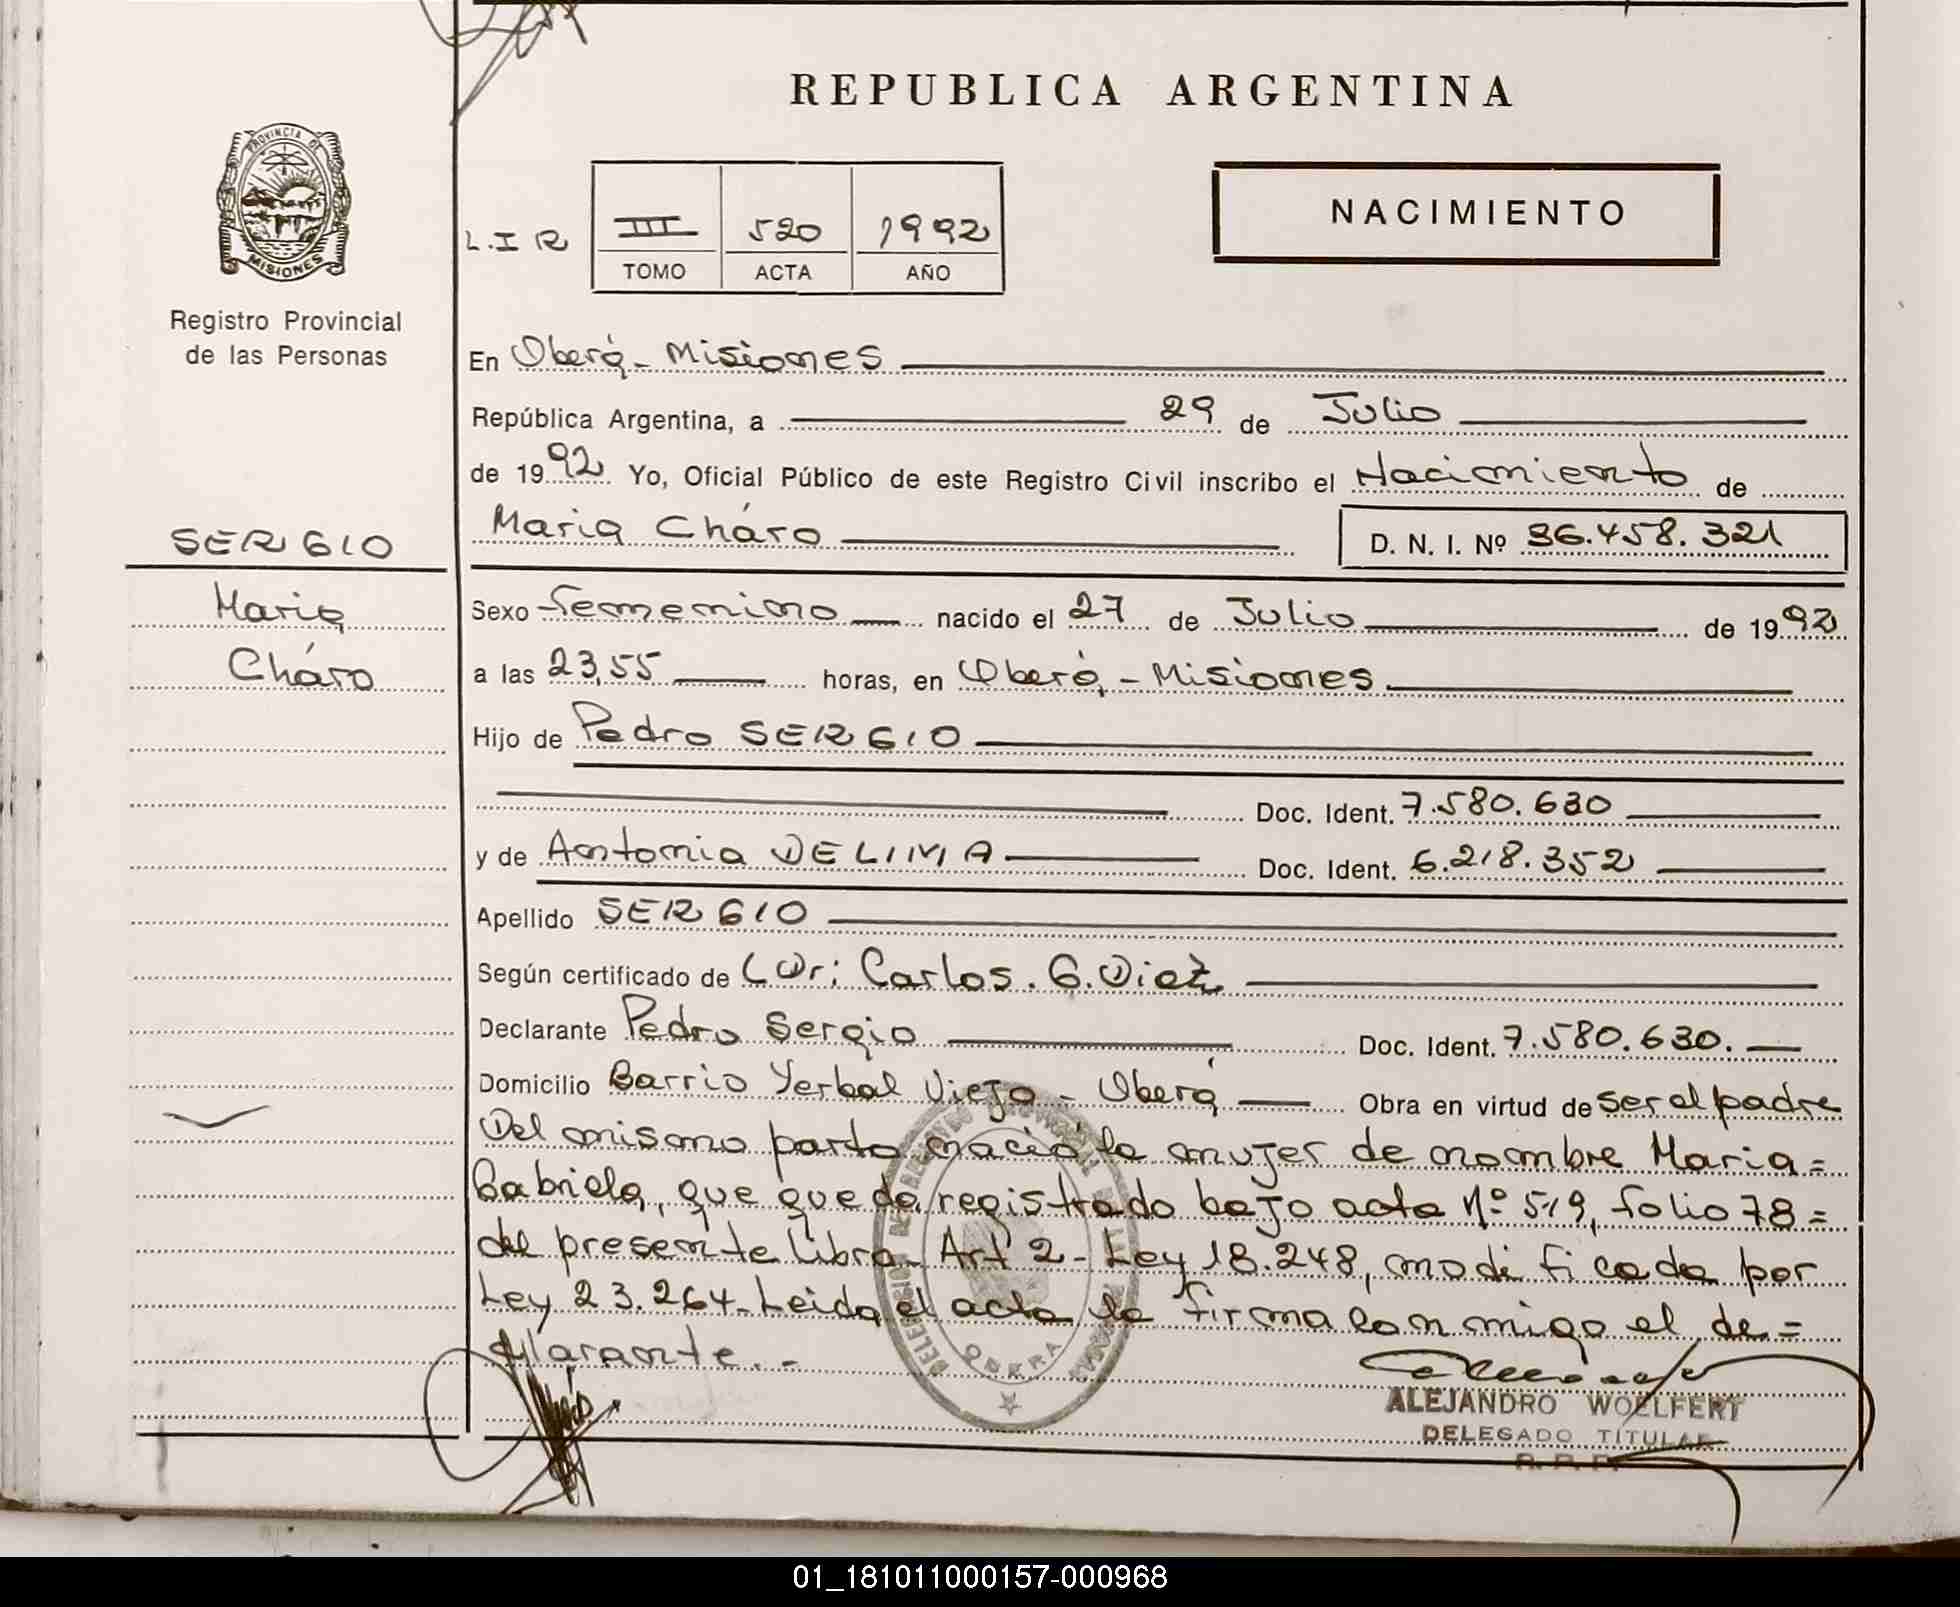 REPUBLICA ARGENTINA
PROVINCIA DE
MISIONES
Registro Provincial
de las Personas
L.I R
III 520 1992
TOMO ACTA AÑO
NACIMIENTO
En Oberá - Misiones
República Argentina, a 29 de Julio
de 1992 Yo, Oficial Público de este Registro Civil inscribo el Nacimiento de
Maria Cháro D. N. I. Nº 36.458.321
SERGIO
Maria
Cháro
Sexo femenino nacido el 27 de Julio de 1992
a las 23,55 horas, en Oberá - Misiones
Hijo de Pedro SERGIO
Doc. Ident. 7.580.630
y de Antonia DELIMA Doc. Ident. 6.218.352
Apellido SERGIO
Según certificado de Dr: Carlos. G. Diez
Declarante Pedro Sergio Doc. Ident. 7.580.630.
Domicilio Barrio Yerbal Viejo - Oberá Obra en virtud de ser el padre
Del mismo parto nació la mujer de nombre Maria =
Gabriela, que queda registrado bajo acta Nº 519, folio 78 =
del presente libro. Art 2 - Ley 18.248, modificada por
Ley 23.264. Leida el acta, la firma conmigo el de =
clarante. -
OBERA
ALEJANDRO WOELFERT
DELEGADO TITULAR
R. P. P.
01_181011000157-000968